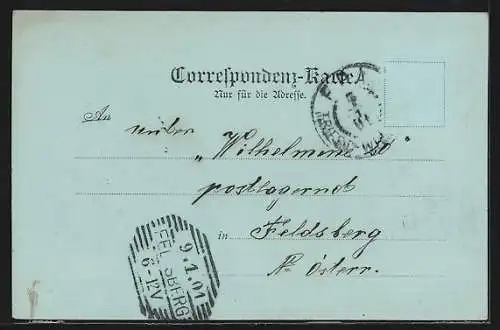 Correspondenz-Karte
Nur für die Adresse.
An unter
„Wilhelmine 60“
postlagernd
in Feldsberg
N. österr.
9.1.01
FELDSBERG
6-12V